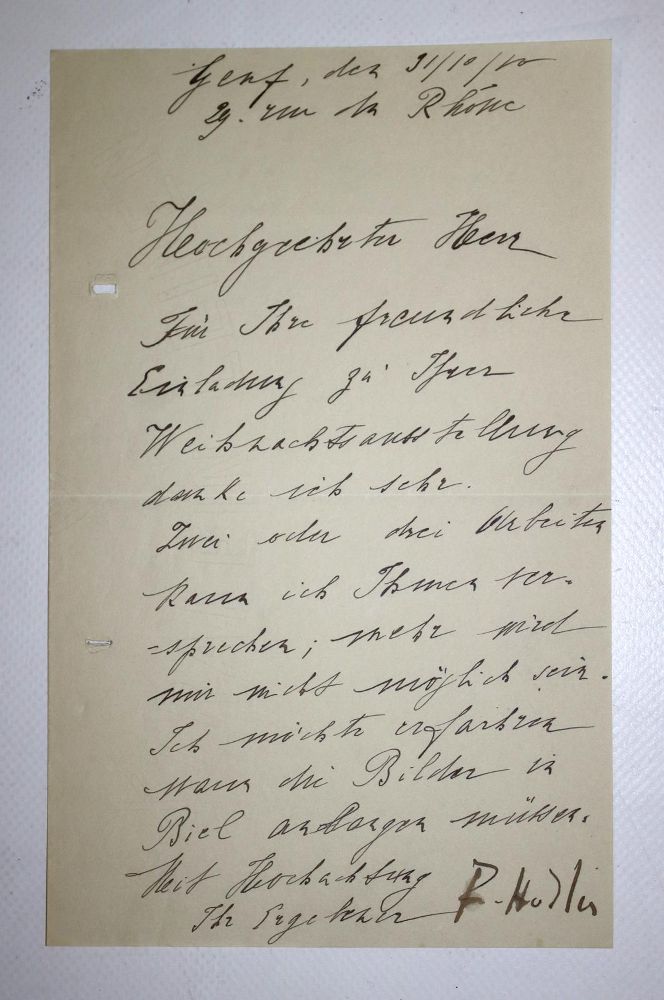 Genf, den 31/10/10
29. rue du Rhône
Hochgeehrter Herr
Für Ihre freundliche
Einladung zu Ihrer
Weihnachtsausstellung
danke ich sehr.
Zwei oder drei Arbeiten
kann ich Ihnen ver-
-sprechen; mehr wird
mir nicht möglich sein.
Ich möchte erfahren
wann die Bilder in
Biel anlangen müssen.
Mit Hochachtung
Ihr Ergebener F. Hodler